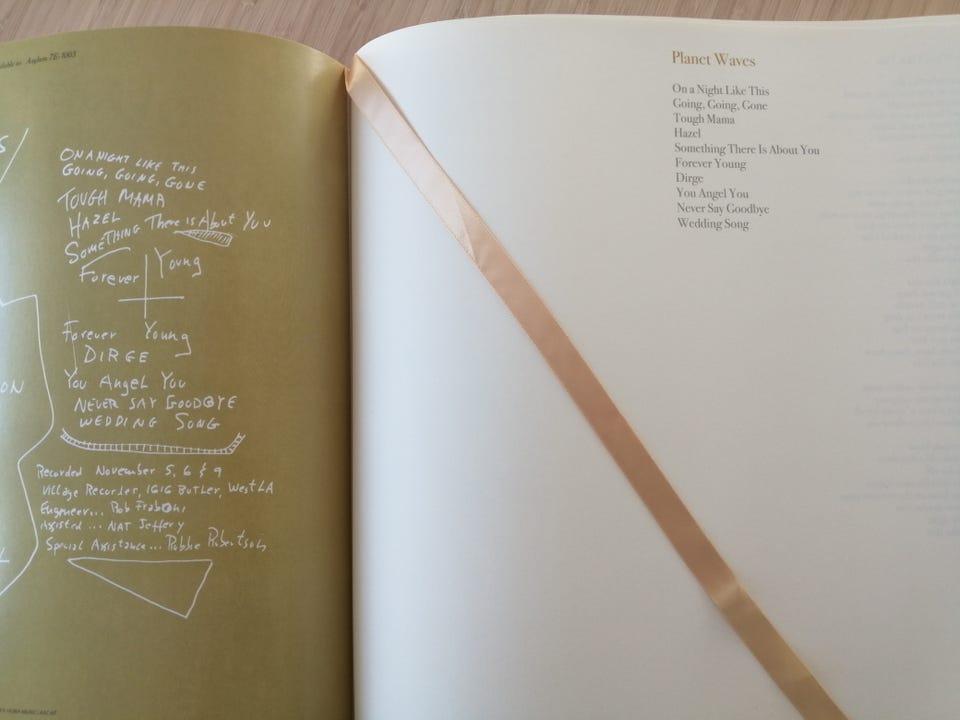 Asylum 7E-1003
S/
ON A NIGHT LIKE THIS
GOING, GOING, GONE
TOUGH MAMA
HAZEL
SOMETHING There is About You
Forever Young
Forever Young
DIRGE
You Angel You
NEVER SAY GOODBYE
WEDDING SONG
ON
Recorded November 5, 6 & 9
Village Recorder, 1616 BUTLER, West LA
Engineer... Rob Fraboni
Assisted... NAT Jeffery
Special Assistance... Robbie Robertson
L
Planet Waves
On a Night Like This
Going, Going, Gone
Tough Mama
Hazel
Something There Is About You
Forever Young
Dirge
You Angel You
Never Say Goodbye
Wedding Song